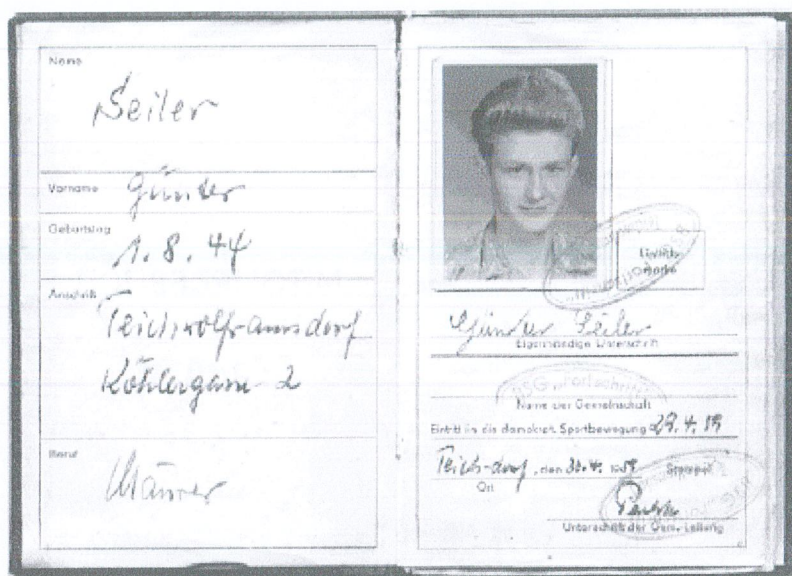 Name
Seiler
Vorname Günter
Geburtstag
1. 8. 44
Anschrift
Teichwolframsdorf
Köhlergasse 2
Beruf
Eintritts-
marke
Günter Seiler
Eigenhändige Unterschrift
BSG
Name der Gemeinschaft
Eintritt in die demokrat. Sportbewegung 29. 4. 59
Teich-dorf, den 30. 4. 1959 Stempel
Ort
Unterschrift der Gem.-Leitung